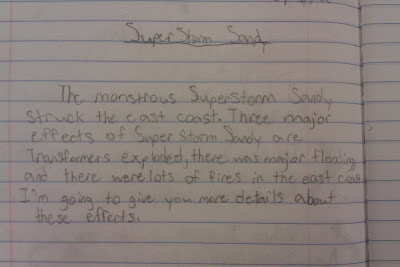 Super Storm Sandy
The monstrous Superstorm Sandy
struck the east coast. Three major
effects of Super Storm Sandy are
Transformers exploded, there was major flooding
and there were lots of fires in the east coast.
I'm going to give you more details about
these effects.